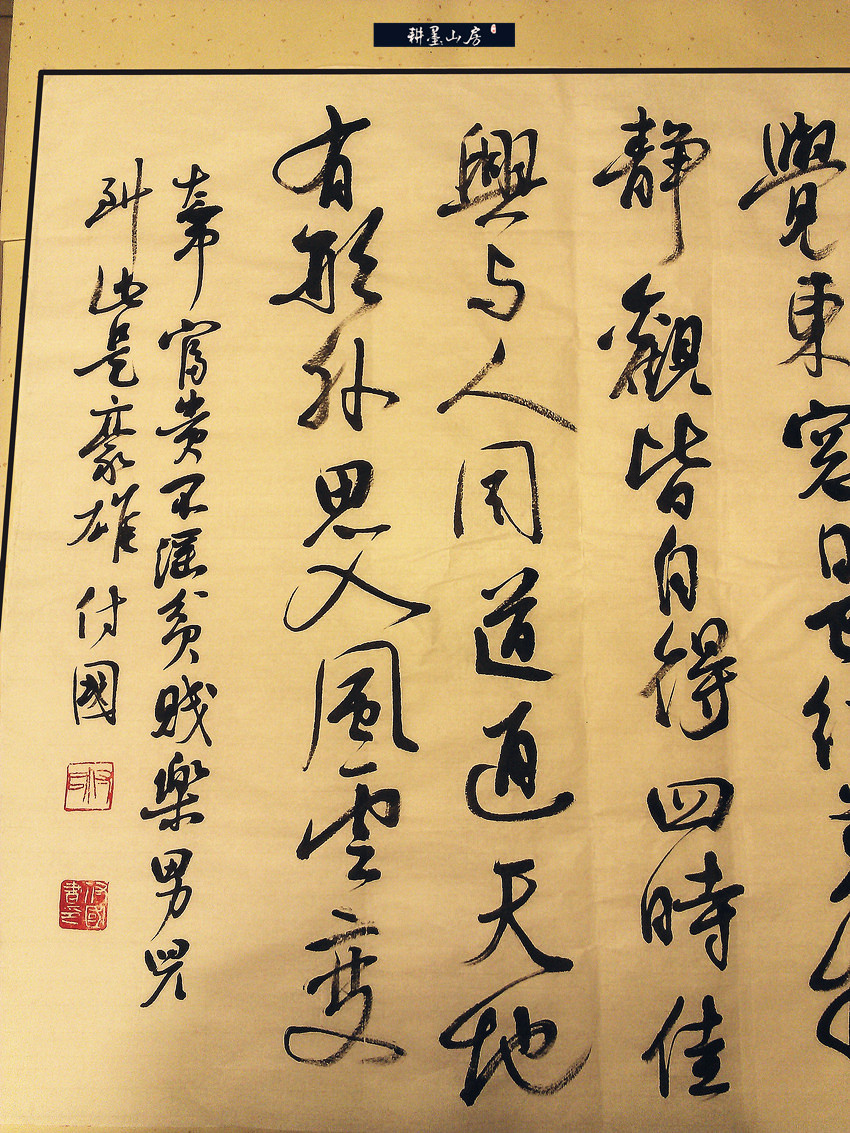 耕墨山房
覺東窓日已红
静觀皆自得四時佳
興与人同道通天地
有形外思入風雲变
态中富貴不淫貧賤樂男兒
到此是豪雄付國
付國書印